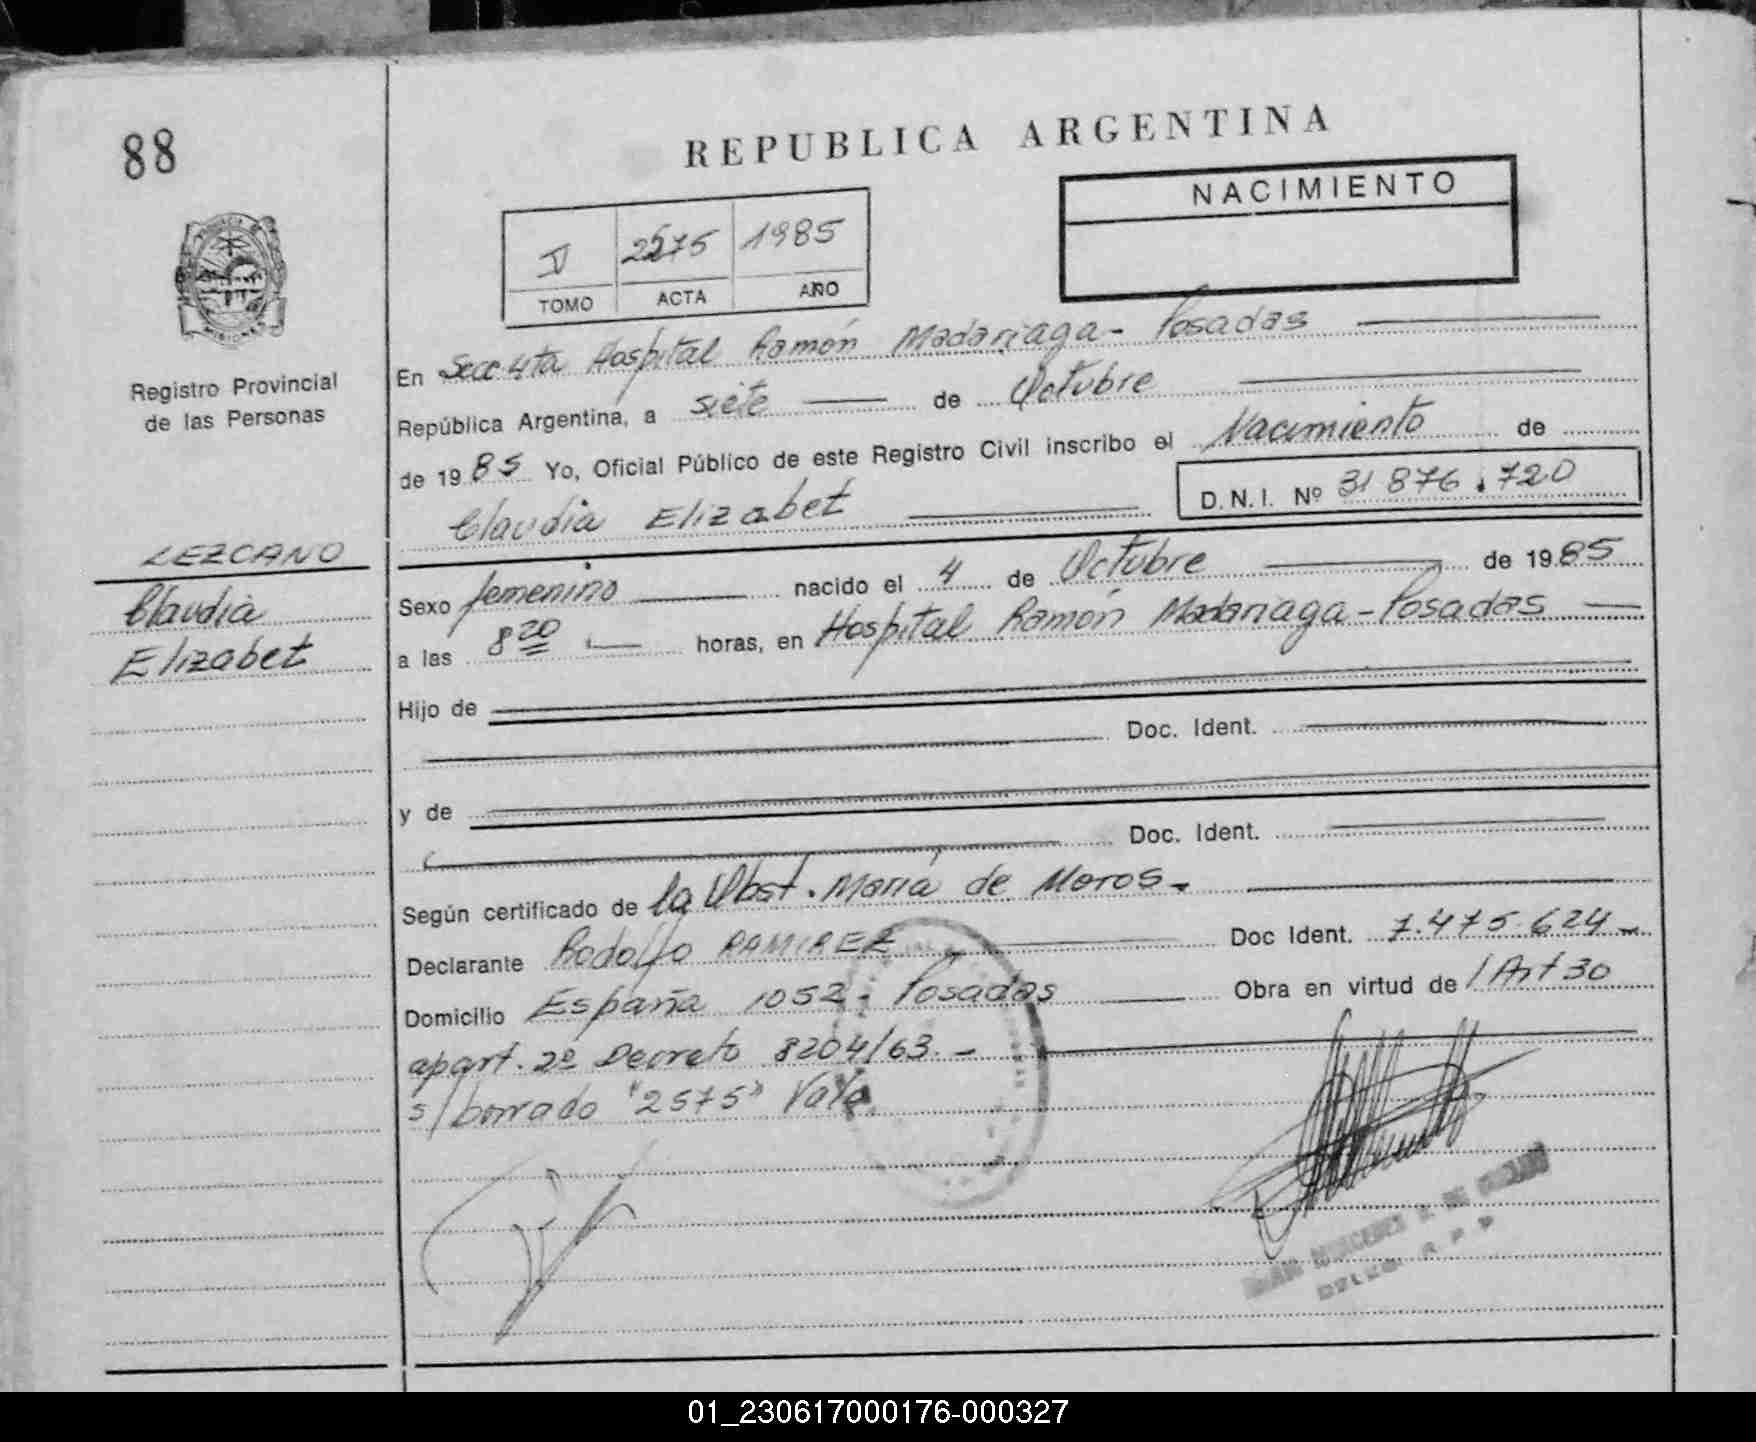 88
REPUBLICA ARGENTINA
NACIMIENTO
V 2575 1985
TOMO ACTA AÑO
MISIONES
Registro Provincial
de las Personas
En Secc 4ta Hospital Ramón Madariaga - Posadas
República Argentina, a siete de Octubre
de 1985 Yo, Oficial Público de este Registro Civil inscribo el Nacimiento de
Claudia Elizabet D.N.I. Nº 31 876.720
LEZCANO
Claudia
Elizabet
Sexo femenino nacido el 4 de Octubre de 1985
a las 8 20 horas, en Hospital Ramón Madariaga - Posadas
Hijo de
Doc. Ident.
y de
Doc. Ident.
Según certificado de la Obst. María de Moros.
Declarante Rodolfo RAMIREZ Doc Ident. 7.475.624
Domicilio España 1052 - Posadas Obra en virtud de / Art 30
apart. 2º Decreto 8204/63. -
s/borrado "2575" Vale
MERCEDES
01_230617000176-000327